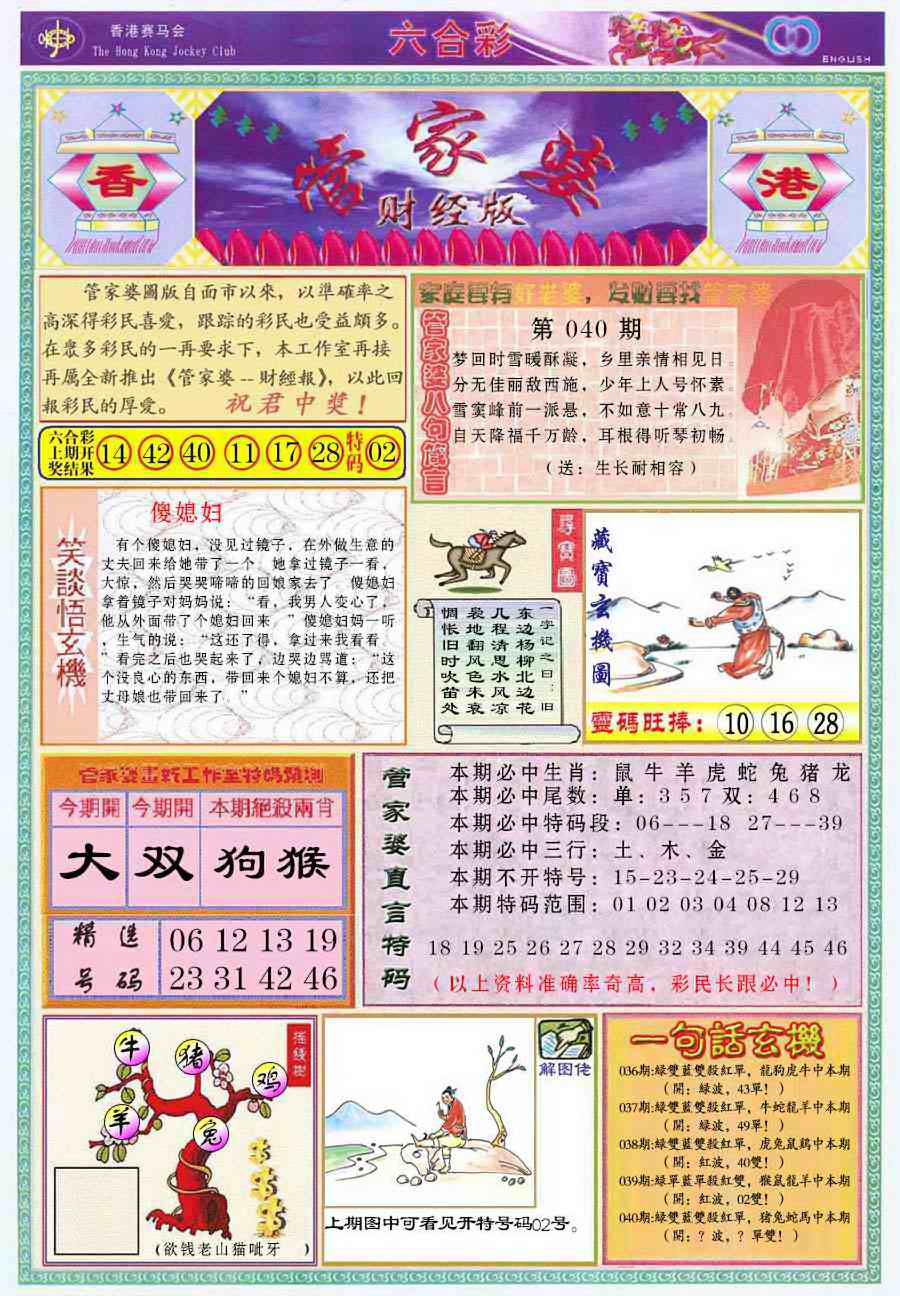 香港赛马会
The Hong Kong Jockey Club
六合彩
ENGLISH
香
管家婆
财经版
港
管家婆圖版自面市以來，以準確率之
高深得彩民喜爱，跟踪的彩民也受益頗多。
在眾多彩民的一再要求下，本工作室再接
再厲全新推出《管家婆--財經報》，以此回
報彩民的厚爱。 祝君中獎！
六合彩
上期开
奖结果
14 42 40 11 17 28 特码 02
家庭要有好老婆，发财要找管家婆
管家婆八句箴言
第 040 期
梦回时雪暖酥凝，乡里亲情相见日。
分无佳丽敌西施，少年上人号怀素。
雪窦峰前一派悬，不如意十常八九。
自天降福千万龄，耳根得听琴初畅。
（送：生长耐相容）
笑談悟玄機
傻媳妇
有个傻媳妇，没见过镜子，在外做生意的
丈夫回来给她带了一个。她拿过镜子一看，
大惊，然后哭哭啼啼的回娘家去了。傻媳妇
拿着镜子对妈妈说：“看，我男人变心了，
他从外面带了个媳妇回来。”傻媳妇妈一听
，生气的说：“这还了得，拿过来我看看。
”看完之后也哭起来了，边哭边骂道：“这
个没良心的东西，带回来个媳妇不算，还把
丈母娘也带回来了。”
尋寶圖
一字记之曰：旧
东边杨柳北边花
几程清思水风凉
袅地翻风色未衰
惆怅旧时吹笛处
藏寶玄機圖
靈碼旺捧：10 16 28
管家婆画新工作室特码预测
今期開 今期開 本期絕殺兩肖
大 双 狗猴
精选号码
06 12 13 19
23 31 42 46
管家婆直言特码
本期必中生肖：鼠牛羊虎蛇兔猪龙
本期必中尾数：单：3 5 7 双：4 6 8
本期必中特码段：06---18 27---39
本期必中三行：土、木、金
本期不开特号：15-23-24-25-29
本期特码范围：01 02 03 04 08 12 13
18 19 25 26 27 28 29 32 34 39 44 45 46
（以上资料准确率奇高，彩民长跟必中！）
摇錢樹
牛
猪
鸡
羊
兔
（欲钱老山猫呲牙 ）
解图佬
上期图中可看见开特号码02号。
一句話玄機
036期:綠雙藍雙殺紅單，龍狗虎牛中本期
（開：綠波，43單！）
037期:綠雙藍雙殺紅單，牛蛇龍羊中本期
（開：綠波，49單！）
038期:綠雙藍雙殺紅單，虎兔鼠鷄中本期
（開：紅波，40雙！）
039期:綠單藍單殺紅雙，猴鼠龍羊中本期
（開：紅波，02雙！）
040期:綠雙藍雙殺紅單，猪兔蛇馬中本期
（開：？波，？單雙！）